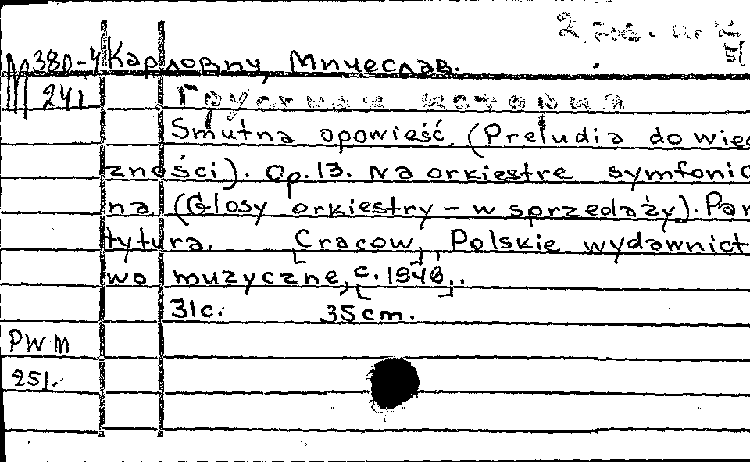 2
М380-4 Карлович, Мпчеслав.
241
Smutna opowieść. (Preludia do wiec
zności). Op.13. Na orkiestre symfonic
na. (Głosy orkiestry - w sprzedaży). Par
tytura. [Cracow], Polskie wydawnict
wo muzyczne, [c.1948].
31c. 35cm.
PWM
251.